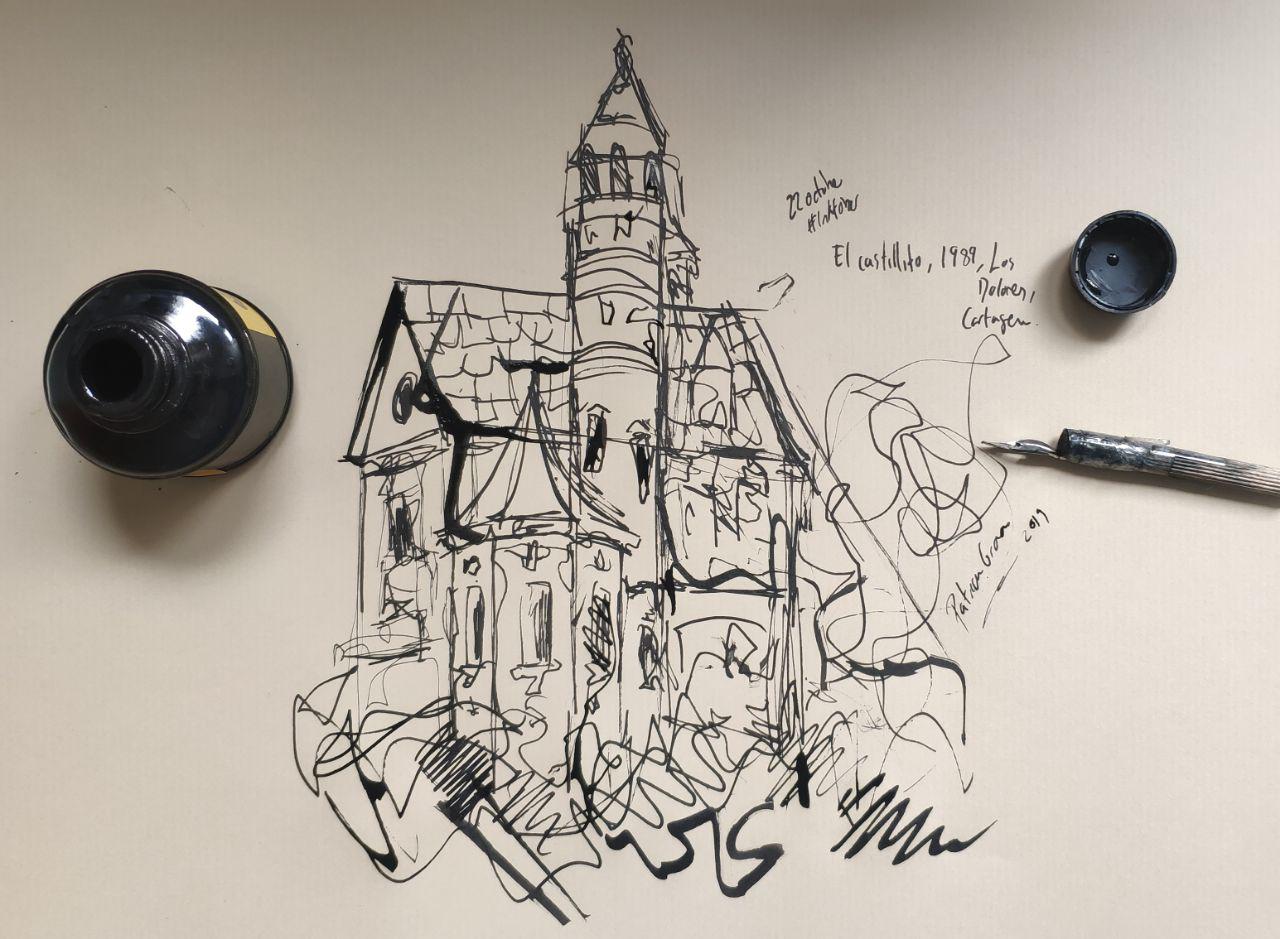 22 octubre
#Inktober
El castillito, 1989, Los
Dolores,
Cartagena.
2019